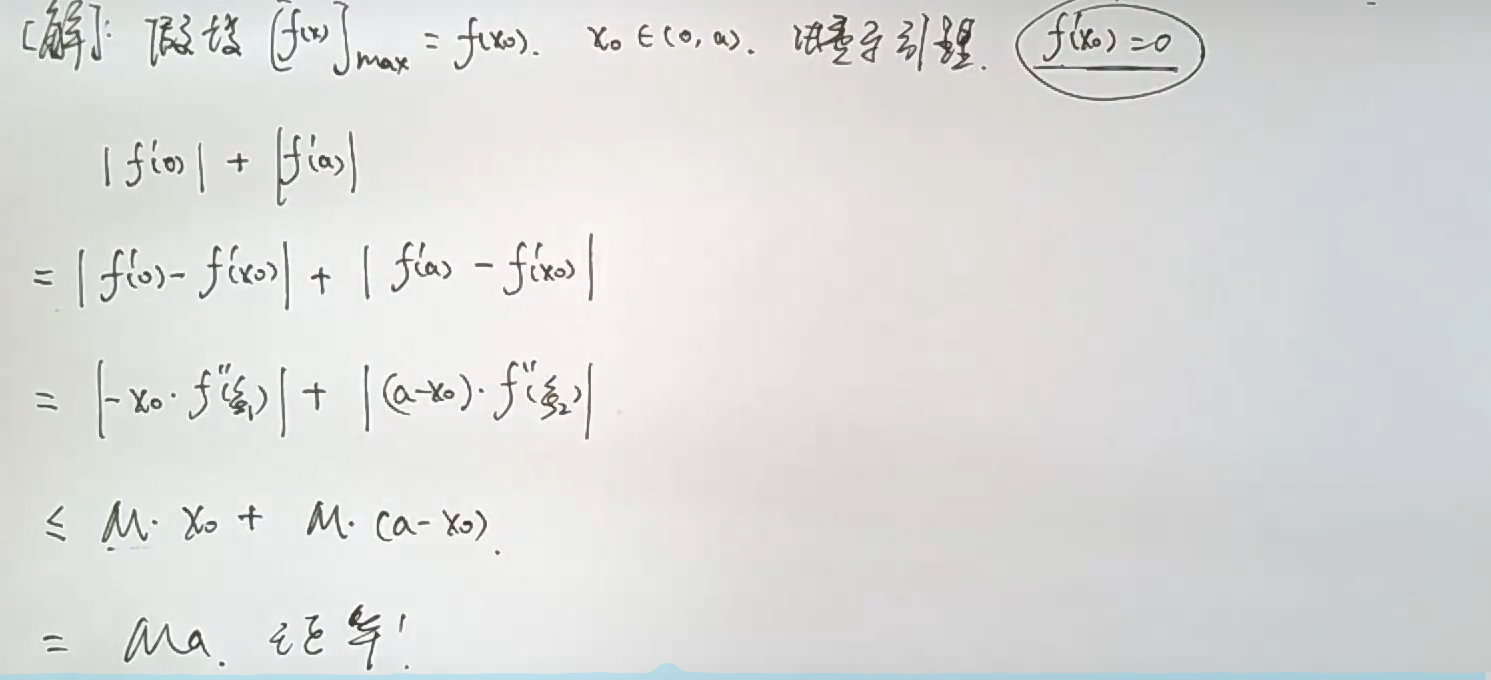 [解]: 假设 [f(x)]max = f(x₀). x₀ ∈ (0, a). 由费马引理. f'(x₀) = 0
|f'(0)| + |f'(a)|
= |f'(0) - f'(x₀)| + |f'(a) - f'(x₀)|
= |-x₀ · f''(ξ₁)| + |(a-x₀) · f''(ξ₂)|
≤ M · x₀ + M · (a - x₀).
= Ma. 证毕!